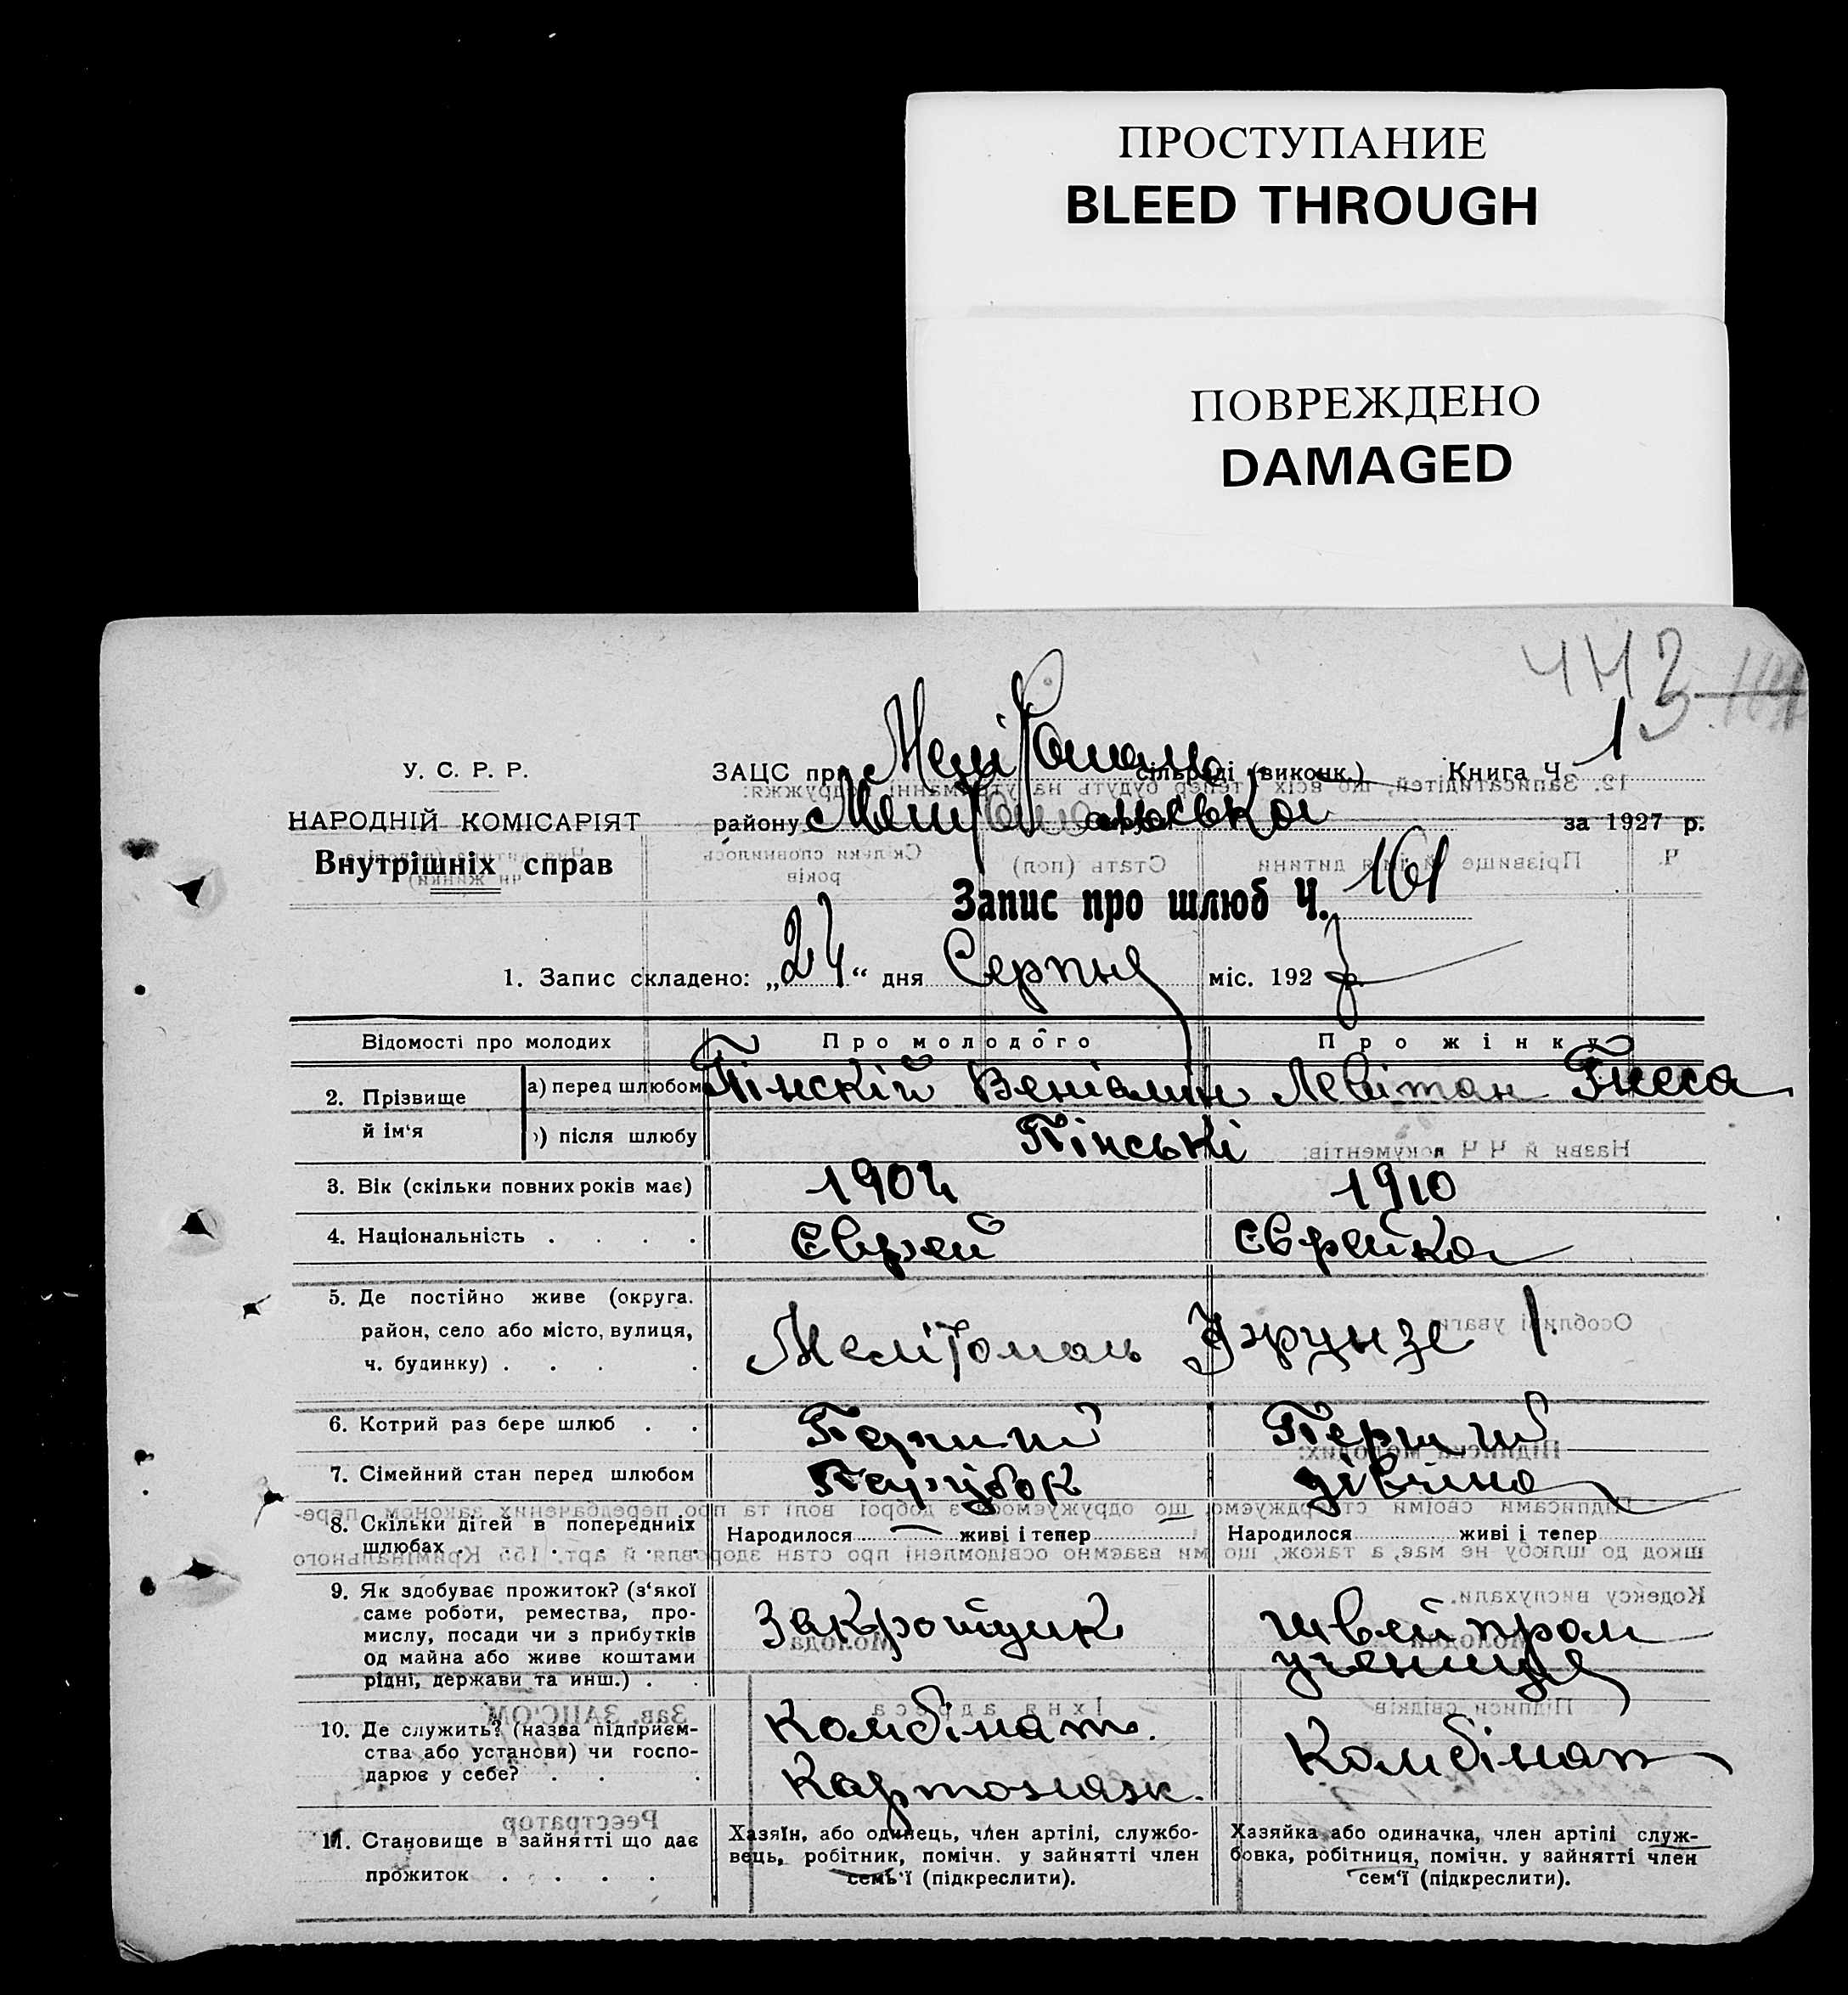 ПРОСТУПАНИЕ
BLEED THROUGH
ПОВРЕЖДЕНО
DAMAGED
ЧНЗ
У. С. Р. Р.
НАРОДНІЙ КОМІСАРІЯТ
Внутрішніх справ
ЗАЦС при Мелітополь сільраді (виконк.) Книга Ч. 1
району Мелітопольської за 1927 р.
Запис про шлюб Ч. 161
1. Запис складено: „24“ дня Серпня міс. 1927 р.
Відомості про молодих Про молодого Про жінку
2. Прізвище й ім‘я а) перед шлюбом Пінскій Веніамін Левітан Гнеса
) після шлюбу Пінські
3. Вік (скільки повних років має) 1904 1910
4. Національність . . . . Єврей Єврейка
5. Де постійно живе (округа.
район, село або місто, вулиця,
ч. будинку) . . . . Мелітополь Фрунзе 1
6. Котрий раз бере шлюб . . Перший Перший
7. Сімейний стан перед шлюбом Парубок дівчина
8. Скільки дітей в попередніх
шлюбах . . . . . . Народилося — живі і тепер Народилося живі і тепер
9. Як здобуває прожиток? (з‘якої
саме роботи, ремества, про-
мислу, посади чи з прибутків
од майна або живе коштами
рідні, держави та инш.) . .
Закройщик
Швейпром
учениця
10. Де служить? (назва підприєм-
ства або установи) чи госпо-
дарює у себе? . . .
Комбінат.
Комбінат
11. Становище в зайнятті що дає
прожиток . . . .
Хазяїн, або одинець, член артілі, службо-
вець, робітник, помічн. у зайнятті член
семь‘ї (підкреслити).
Хазяйка або одиначка, член артілі служ-
бовка, робітниця, помічн. у зайнятті член
сем‘ї (підкреслити).